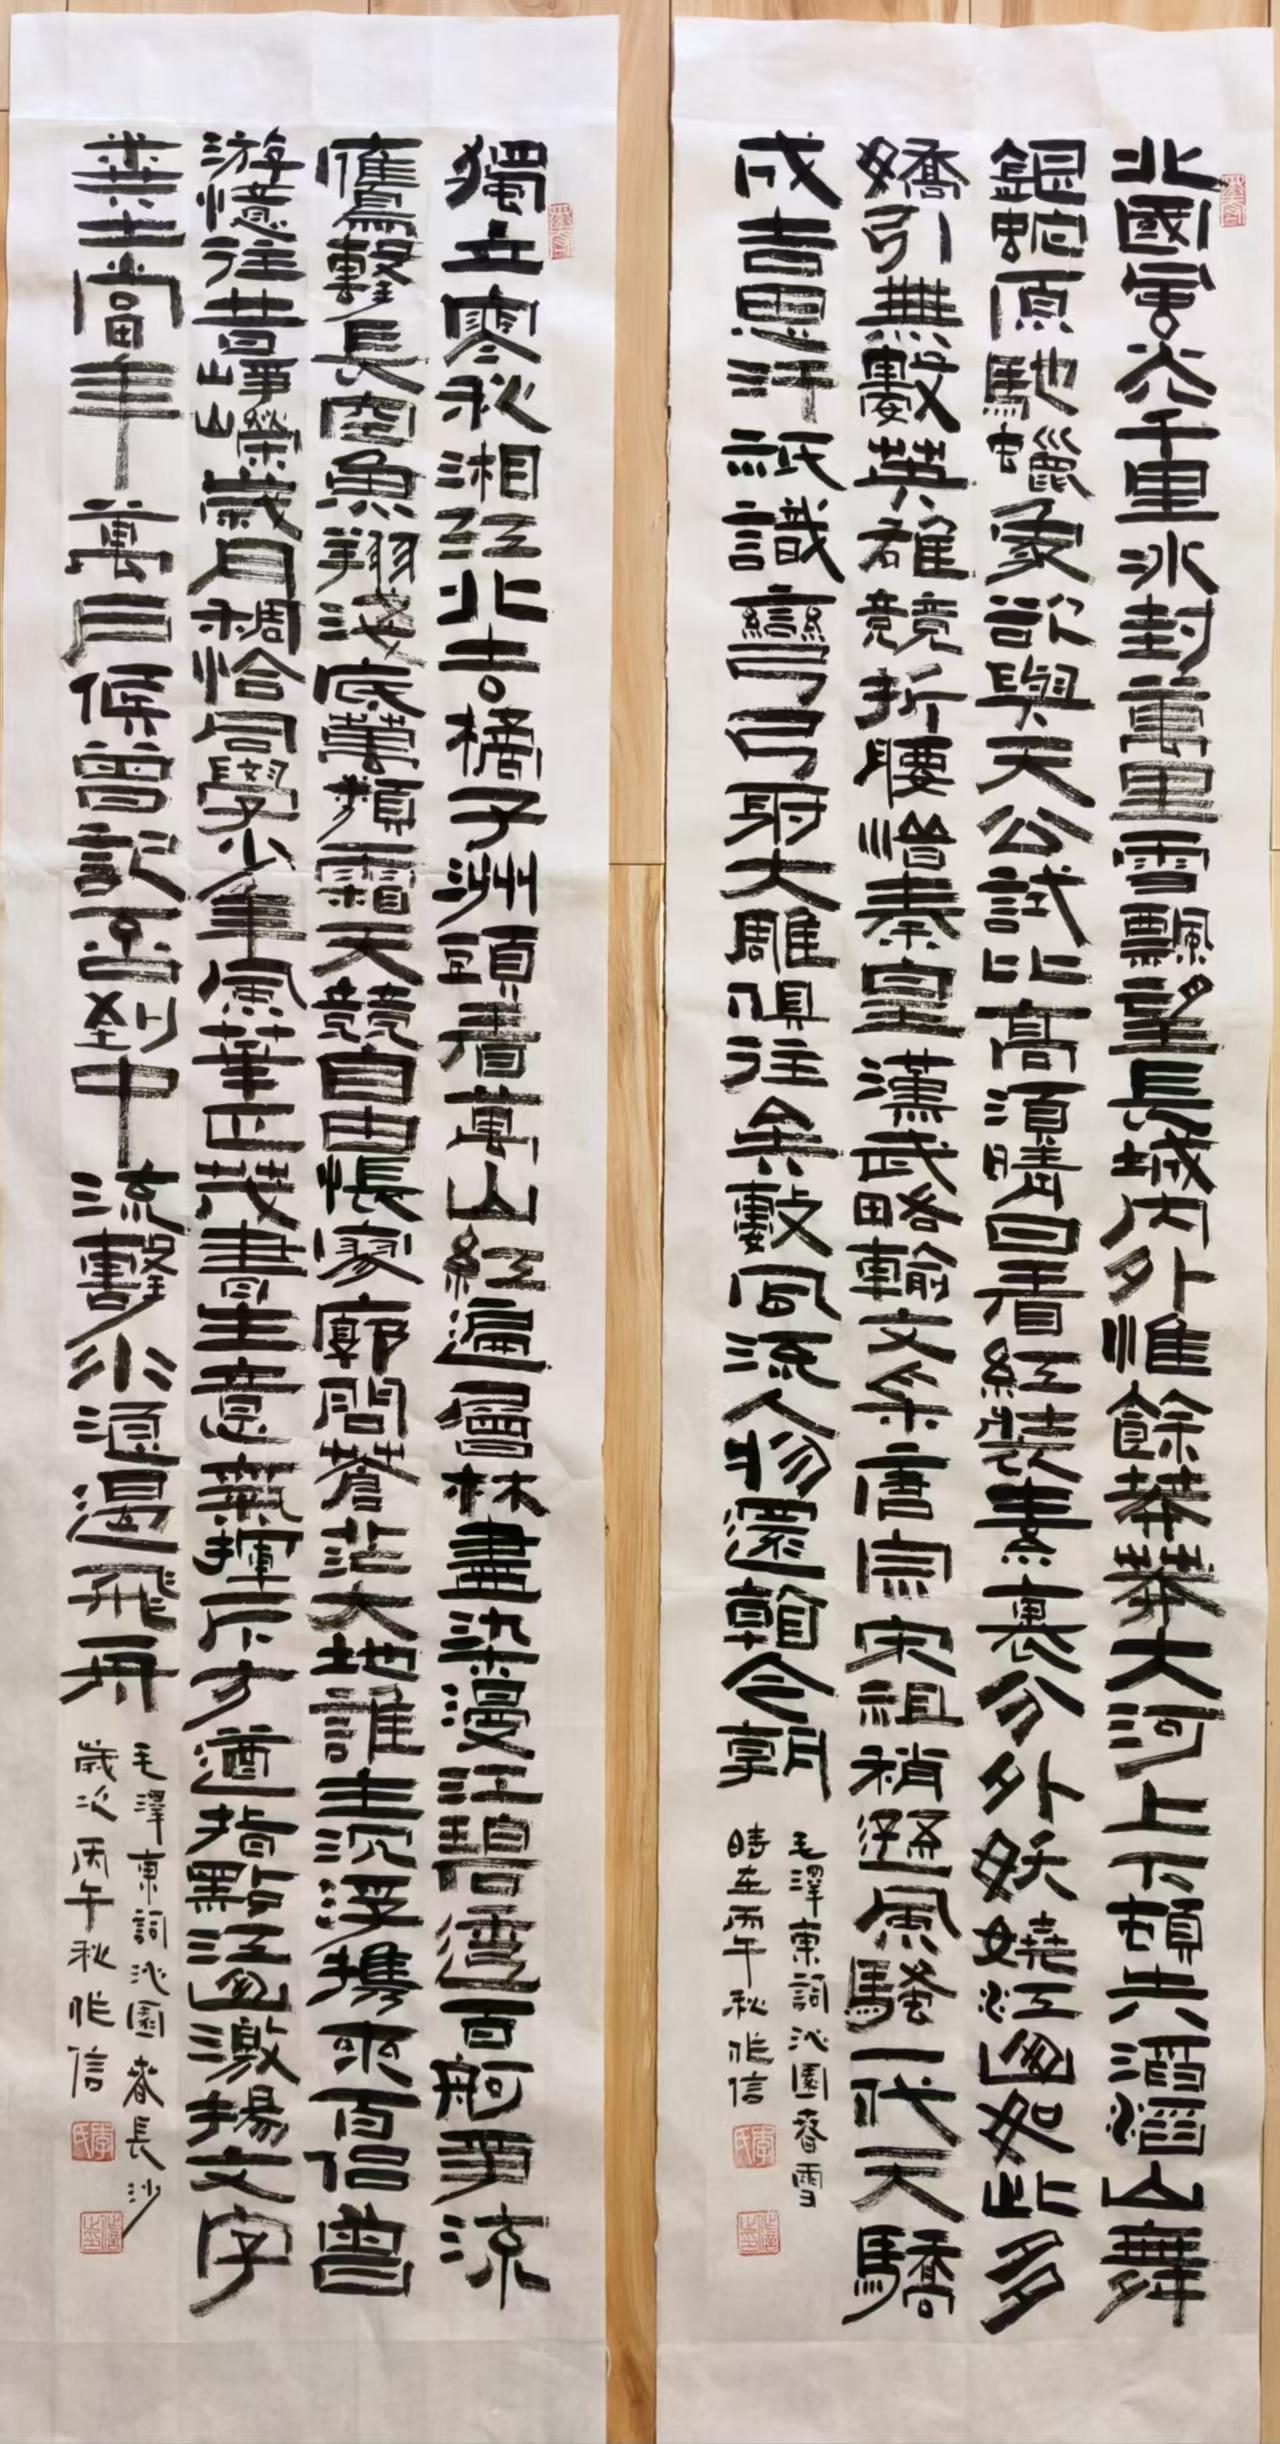 北國風光千里冰封萬里雪飄望長城內外惟餘莽莽大河上下頓失滔滔山舞
銀蛇原馳蠟象欲與天公試比高須晴日看紅裝素裹分外妖嬈江山如此多
嬌引無數英雄競折腰惜秦皇漢武略輸文采唐宗宋祖稍遜風騷一代天驕
成吉思汗祇識彎弓射大雕俱往矣數風流人物還看今朝
毛澤東詞沁園春雪
時在丙午秋作信
獨立寒秋湘江北去橘子洲頭看萬山紅遍層林盡染漫江碧透百舸爭流
鷹擊長空魚翔淺底萬類霜天競自由悵寥廓問蒼茫大地誰主沉浮攜來百侶曾
游憶往昔崢嶸歲月稠恰同學少年風華正茂書生意氣揮斥方遒指點江山激揚文字
糞土當年萬戶侯曾記否到中流擊水浪遏飛舟
毛澤東詞沁園春長沙
歲次丙午秋作信